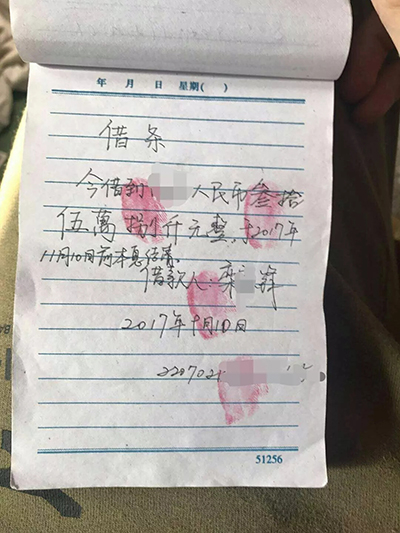 年 月 日 星期( )
借条
今借到 人民币叁拾
伍萬 仟元整,于2017年
11月10日前本息结清。
借款人: 栾
2017年 月10日
220702
51256